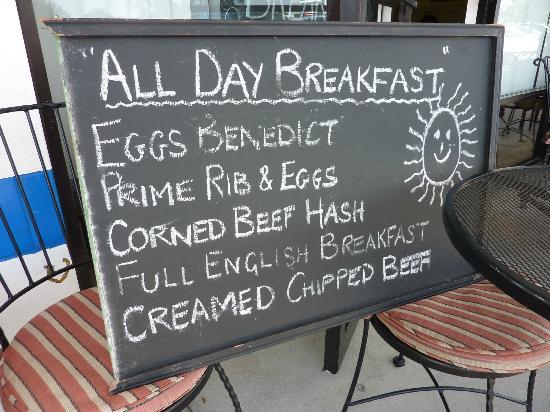 "ALL DAY BREAKFAST"
EGGS BENEDICT
PRIME RIB & EGGS
CORNED BEEF HASH
FULL ENGLISH BREAKFAST
CREAMED CHIPPED BEEF